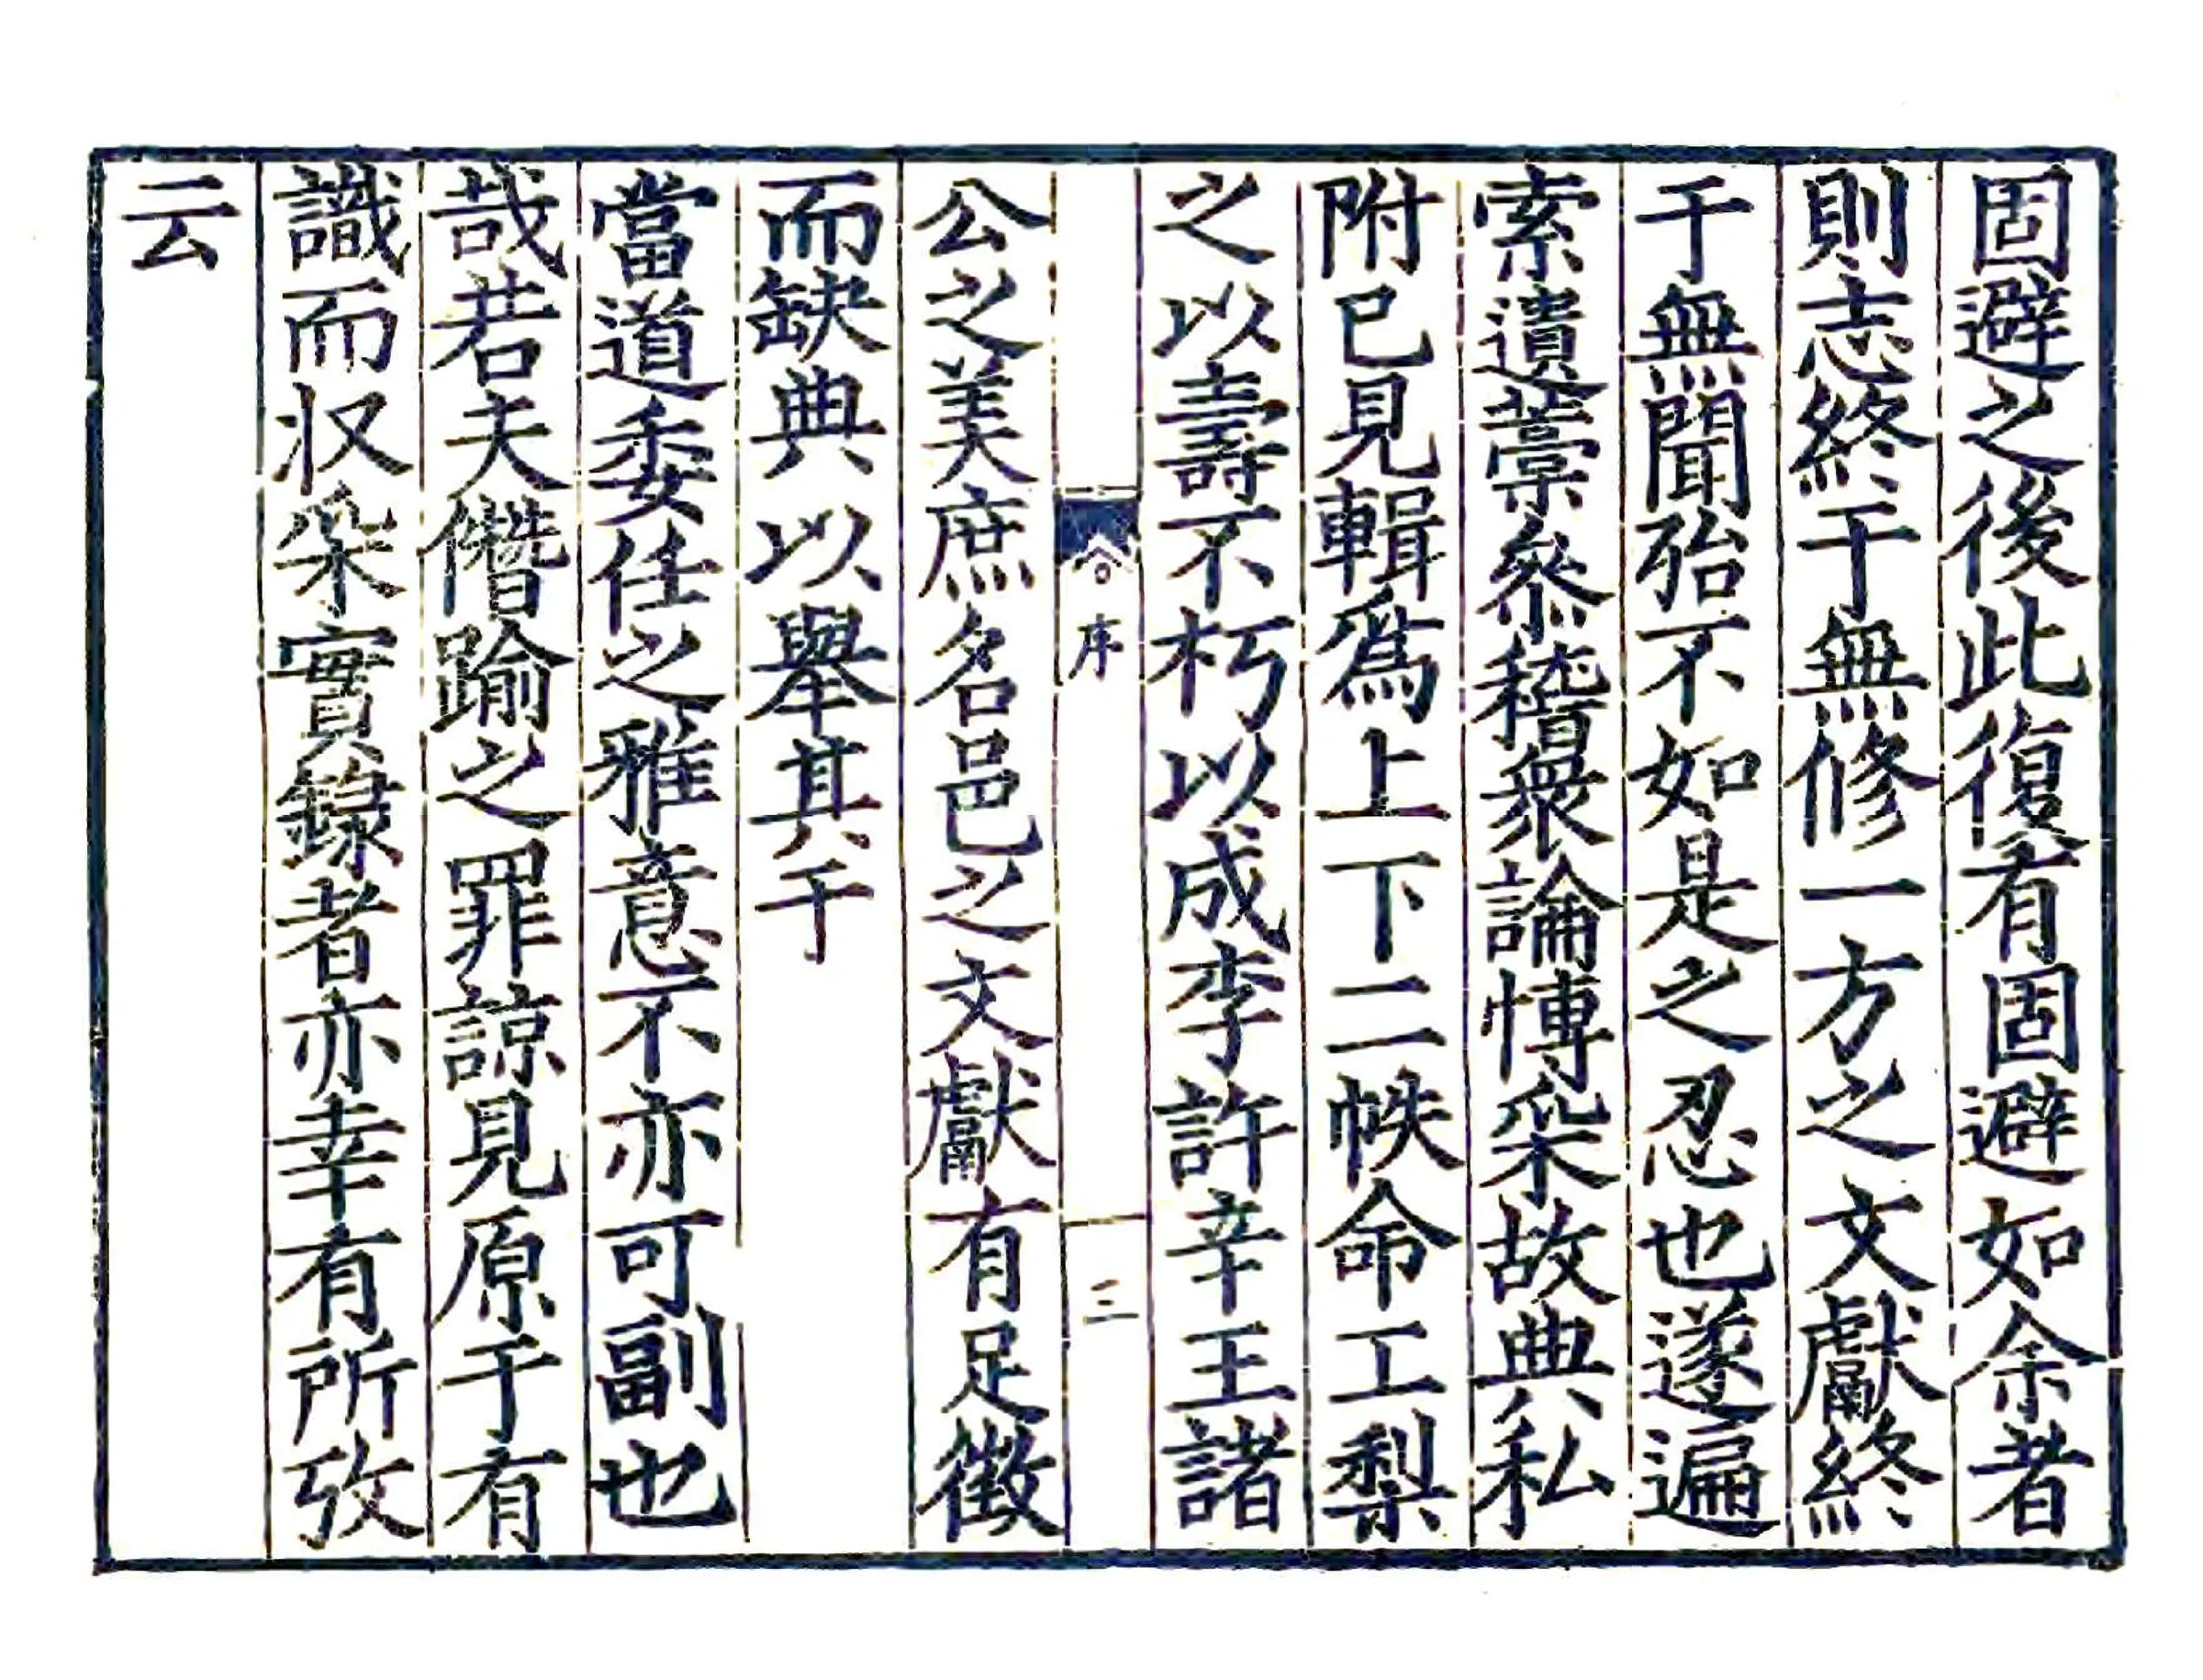 固避之後此復有固避如余者
則志終于無修一方之文獻終
于無聞殆不如是之忍也遂遍
索遺藁叅稽衆論博采故典私
附已見輯爲上下二帙命工梨
之以壽不朽以成李許辛王諸
序
三
公之美庶名邑之文獻有足徵
而缺典以舉其于
當道委任之雅意不亦可副也
哉若夫僭踰之罪諒見原于有
識而収采實錄者亦幸有所攷
云